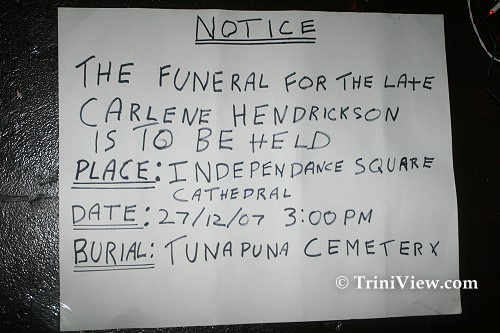 NOTICE
THE FUNERAL FOR THE LATE
CARLENE HENDRICKSON
IS TO BE HELD
PLACE: INDEPENDANCE SQUARE
CATHEDRAL
DATE: 27/12/07 3:00PM
BURIAL: TUNAPUNA CEMETERY
© TriniView.com